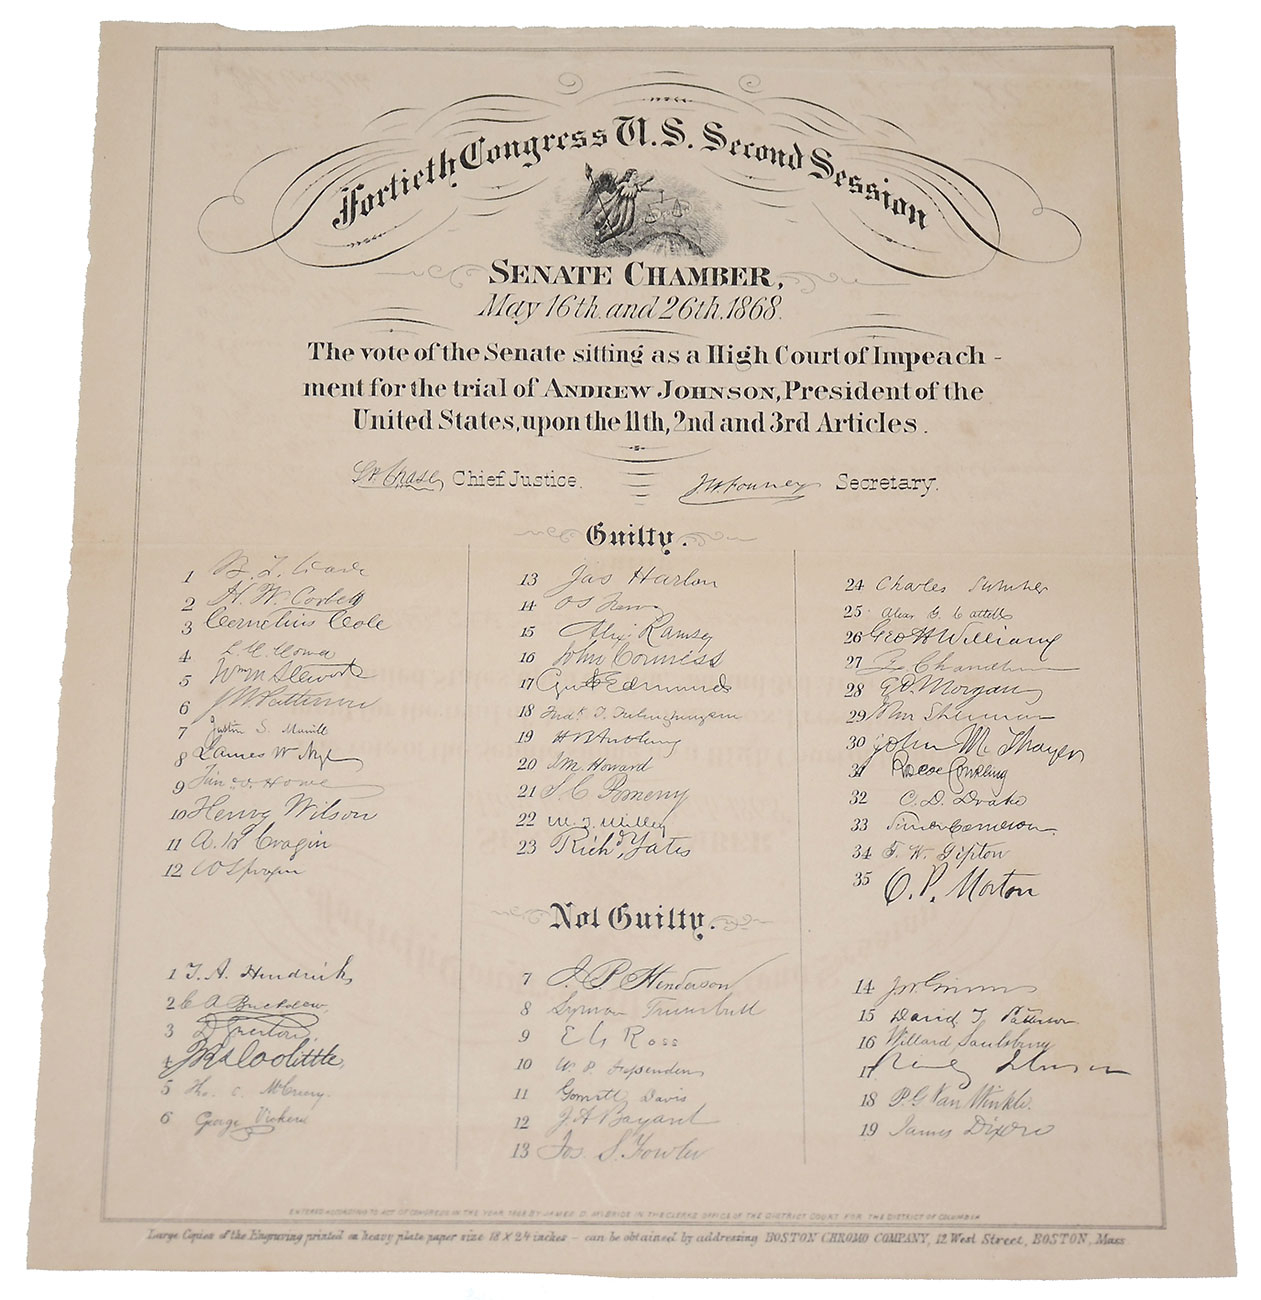 Fortieth Congress U.S. Second Session
SENATE CHAMBER,
May 16th. and 26th. 1868.
The vote of the Senate sitting as a High Court of Impeach-
ment for the trial of ANDREW JOHNSON, President of the
United States, upon the 11th, 2nd and 3rd Articles.
S.P. Chase, Chief Justice.
J.W. Forney Secretary.
Guilty.
1 B. F. Wade
2 H. W. Corbett
3 Cornelius Cole
4
5 Wm M Stewart
6 J W Patterson
7 Justin S. Morrill
8 James W. Nye
9 Tim. O. Howe
10 Henry Wilson
11 A. H. Cragin
12 W Sprague
13 Jas Harlan
14 O S Ferry
15 Alex. Ramsey
16 John Conness
17 Geo F Edmunds
18 Fredk. T. Frelinghuysen
19 H B Anthony
20 J. M. Howard
21 S. C. Pomeroy
22 W. T. Willey
23 Richd. Yates
24 Charles Sumner
25 Alex G. Cattell
26 Geo H Williams
27 Z. Chandler
28 E. D. Morgan
29 John Sherman
30 John M. Thayer
31 Roscoe Conkling
32 C. D. Drake
33 Simon Cameron.
34 T. W. Tipton
35 O. P. Morton
Not Guilty.
1 T. A. Hendricks
2 C. R. Buckalew,
3 D. Norton,
4 J R Doolittle,
5 Tho. C. McCreery.
6 George Vickers
7 J. B. Henderson
8 Lyman Trumbull
9 E G Ross
10 W. P. Fessenden
11 Garrett Davis
12 J. A Bayard
13 Jos. S. Fowler
14 J W Grimes
15 David T. Patterson.
16 Willard Saulsbury
17 Reverdy Johnson
18 P. G Van Winkle.
19 James Dixon
ENTERED ACCORDING TO ACT OF CONGRESS IN THE YEAR 1868 BY JAMES D. McBRIDE IN THE CLERKS OFFICE OF THE DISTRICT COURT FOR THE DISTRICT OF COLUMBIA
Large Copies of the Engraving printed on heavy plate paper size 18 X 24 inches – can be obtained by addressing BOSTON CHROMO COMPANY, 12 West Street, BOSTON, Mass.